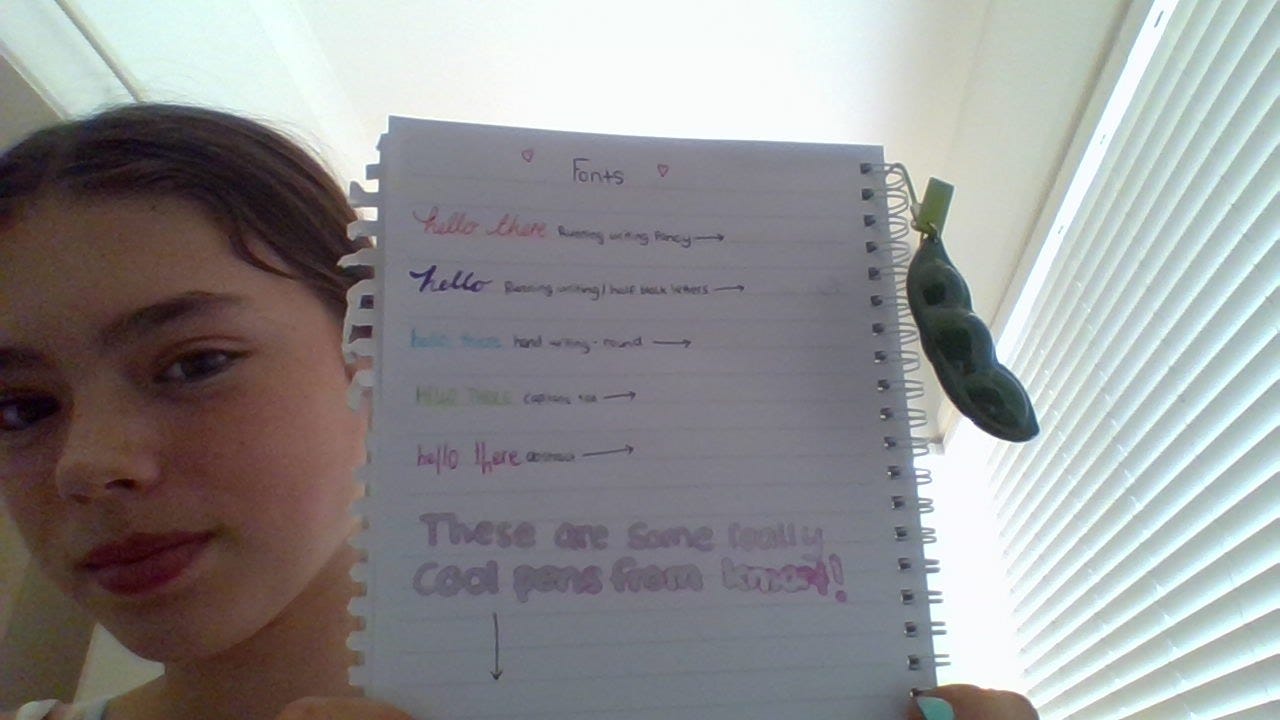 Fonts
hello there Running writing fancy
hello Running writing/half back letters
hello there hand writing - round
HELLO THERE Captions
hello there abstract
These are some really
Cool pens from kmart!